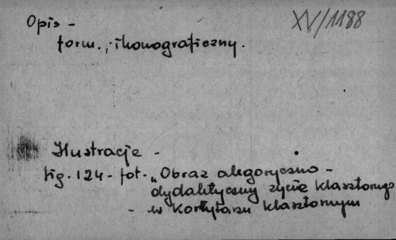 XV/1188
Opis -
form., ikonograficzny.
Ilustracje -
fig. 124 - fot. „Obraz alegoryczno -
dydaktyczny życie klasztornego
- w korytarzu klasztornym